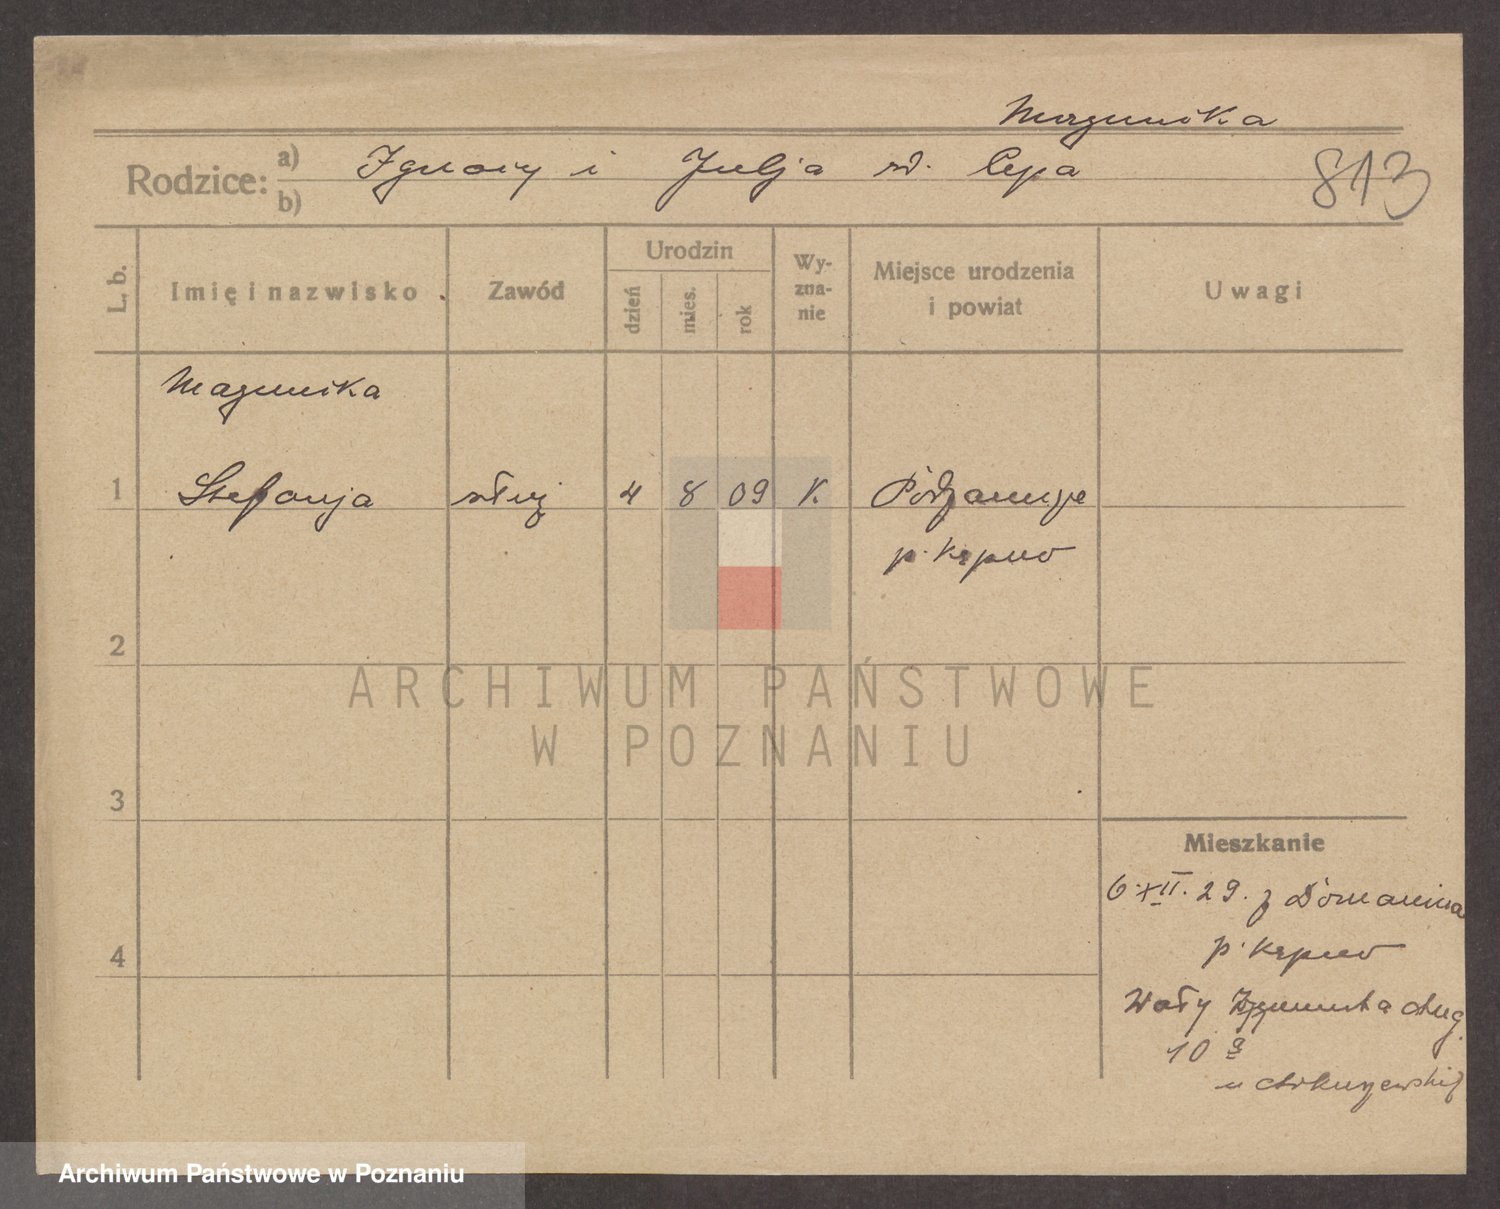 Magunika
Rodzice: a) b) Ignacy i Julja zd. Cepa
813
L. b.
Imię i nazwisko
Zawód
Urodzin
dzień
mies.
rok
Wy-
zna-
nie
Miejsce urodzenia
i powiat
Uwagi
Magunika
1 Stefanja służ 4 8 09 K. Podzamcze
p. Kępno
2
ARCHIWUM PAŃSTWOWE
W POZNANIU
3
Mieszkanie
6.XII.29. z Domanina
4
p. Kępno
Wały Zygmunta Aug.
10 a
u
Archiwum Państwowe w Poznaniu